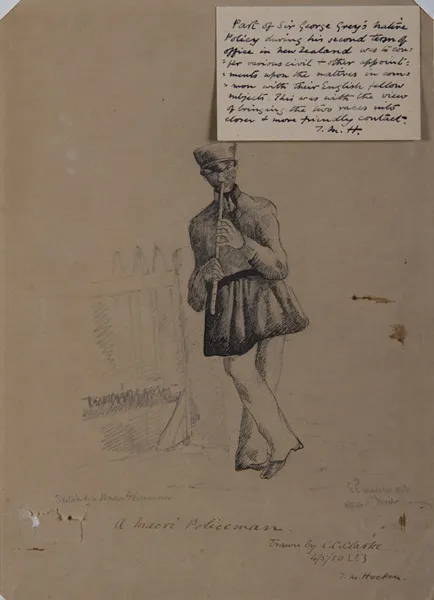 Part of Sir George Grey's Native
Policy during his second term of
office in New Zealand was to con-
-fer various civil & other appoint-
-ments upon the natives in com-
-mon with their English fellow
subjects. This was with the view
of bringing the two races into
closer & more friendly contact.
T. M. H.
A Maori Policeman.
Drawn by
T. M. Hocken.